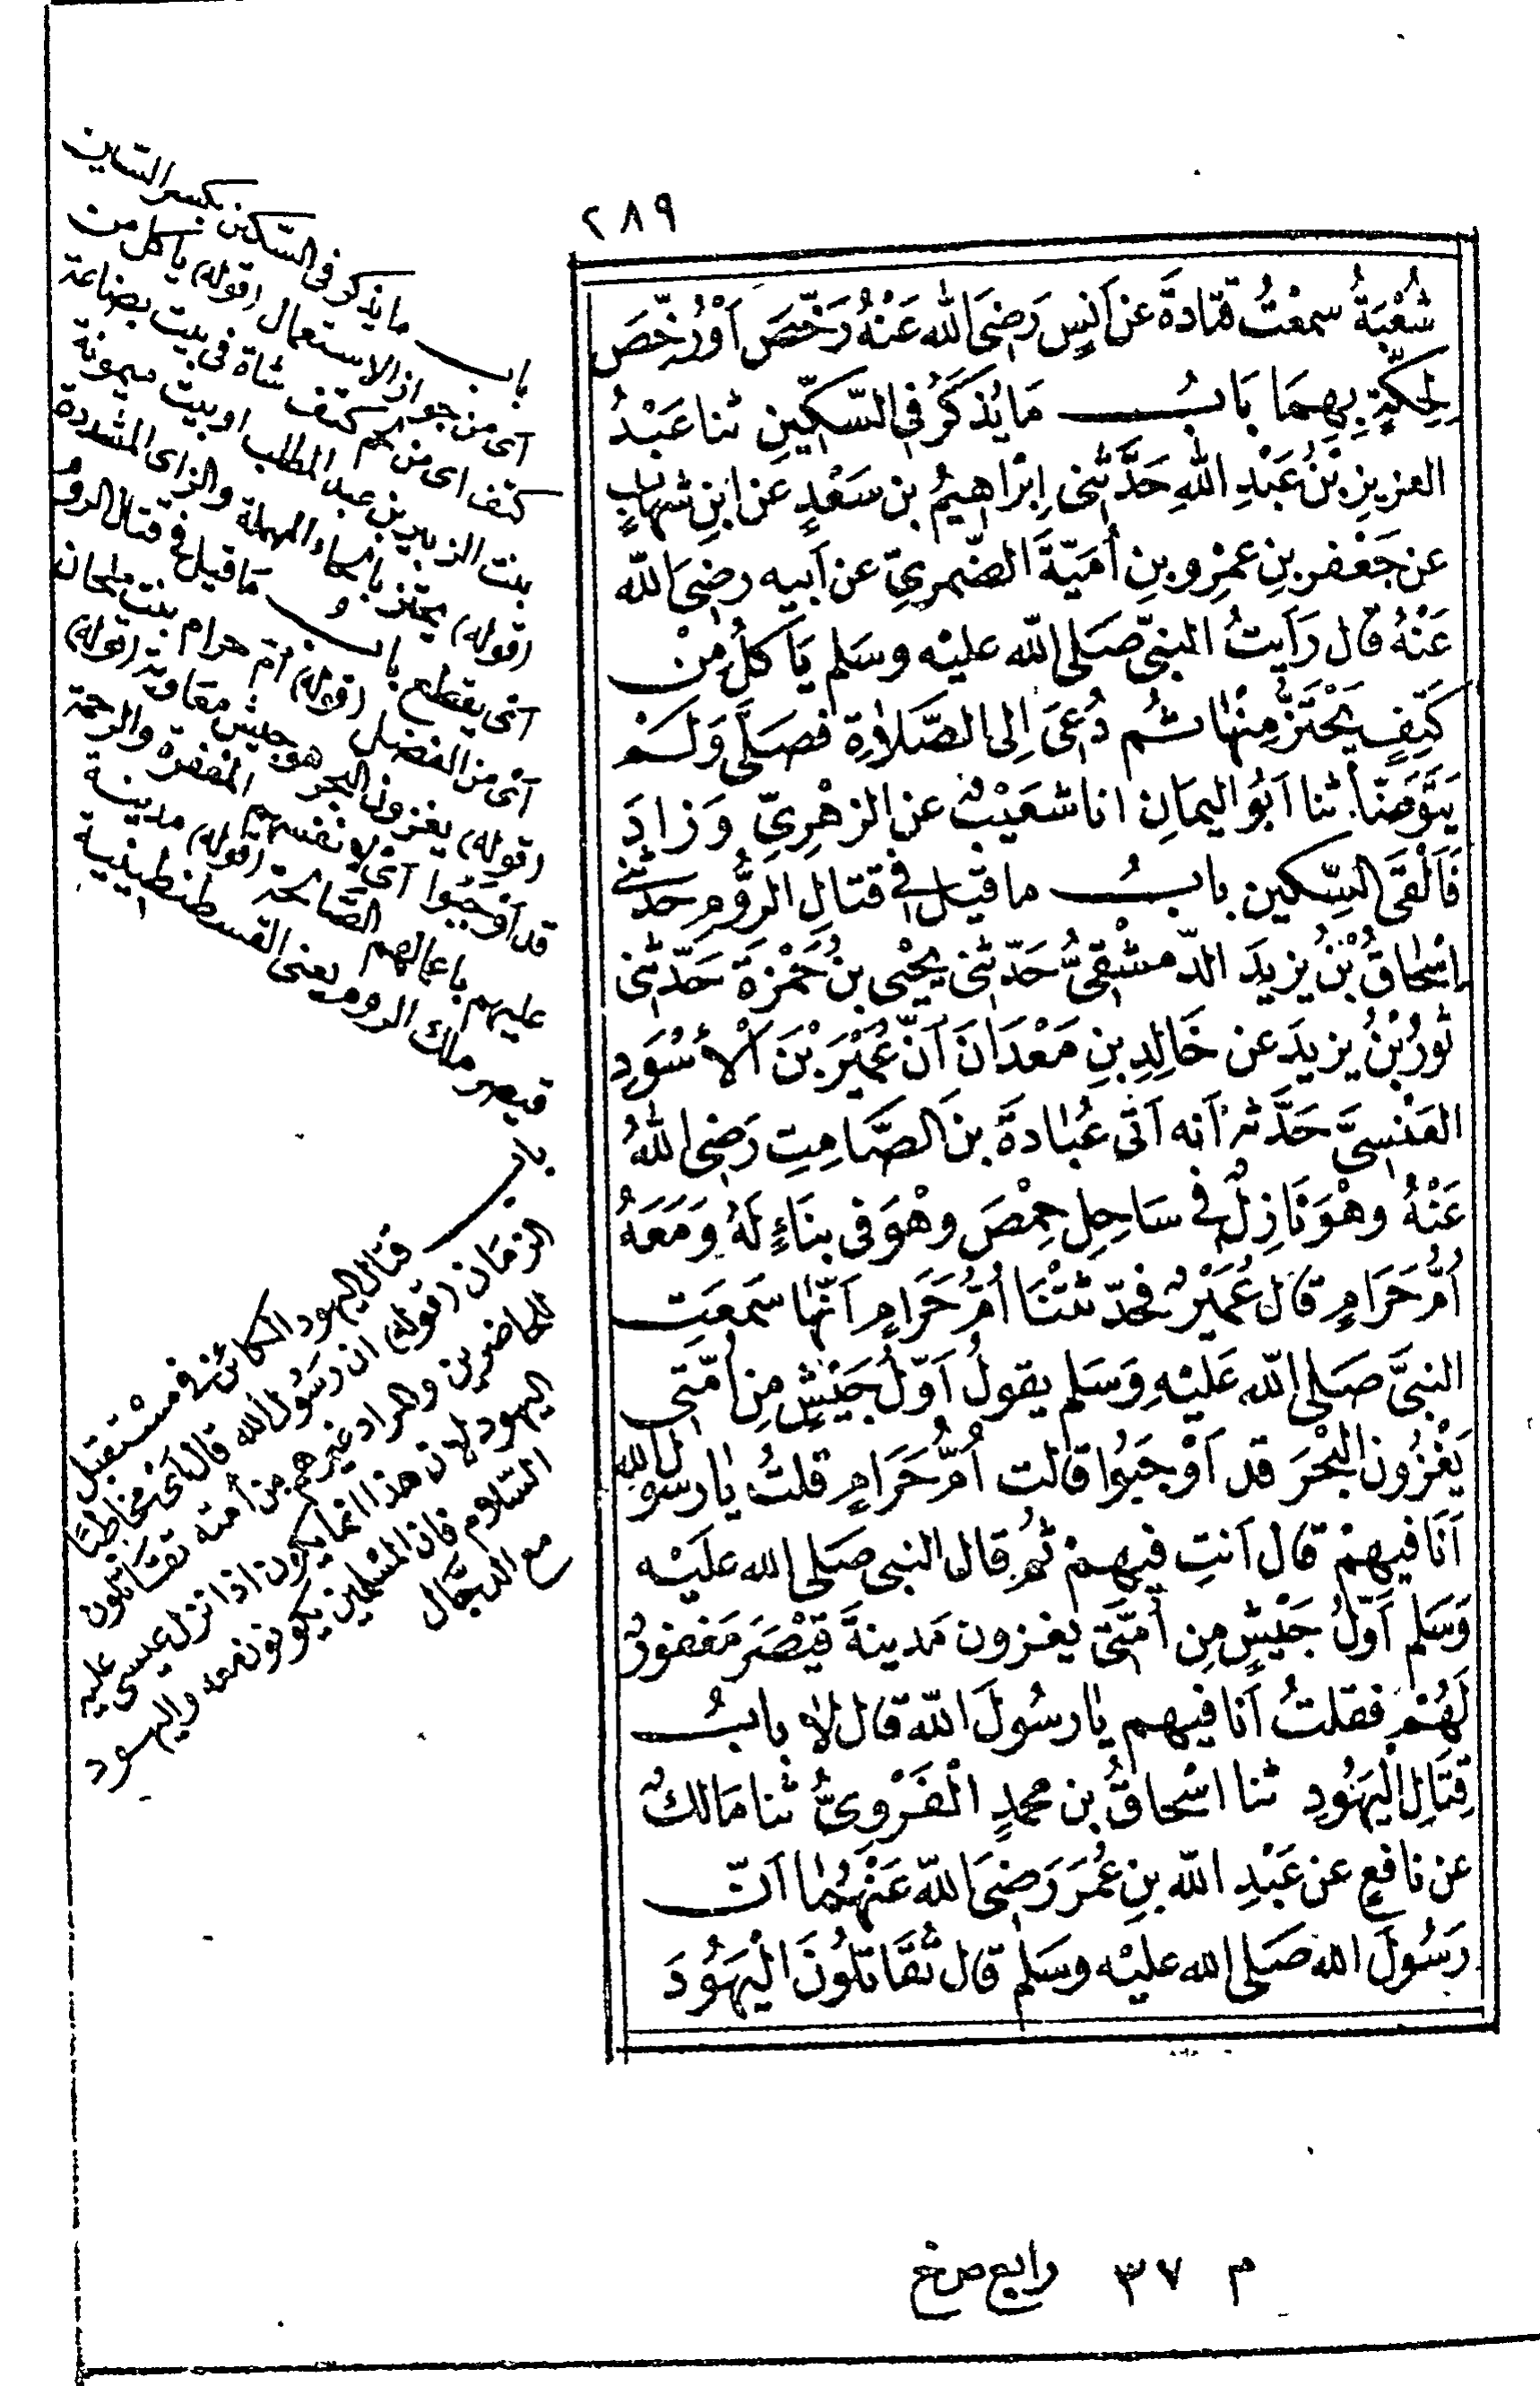 ٢٨٩
شُعْبَةُ سمعْتُ قتادةَ عن اَنَسٍ رَضِىَ الله عَنْهُ رَخَّصَ اَوْ رُخِّصَ
لِحِكَّةٍ بِهِمَا بَابُ مَا يُذكَرُ فِى السّكّينِ ثنا عَبْدُ
العزيزِ بْنُ عَبْدِ اللهِ حَدَّثنى اِبْرَاهيمُ بن سَعْدٍ عن ابنِ شهابٍ
عن جَعْفر بنِ عمْرِو بنِ أُمَيّةَ الضّمرِىِّ عن اَبيه رضِىَ الله
عَنْهُ قال رَاَيتُ النبىَّ صَلى الله عليْه وسَلم يَاكلُ مِنْ
كَتِفٍ يَحْتَزُّ مِنْهٰا ثم دُعىَ اِلى الصّلاٰةِ فصَلّى وَلَمْ
يَتَوَضّأ ثنا اَبُو اليمَانِ انا شعَيْبٌ عن الزهْرِىِّ وَزادَ
فَاَلْقَى السِّكين بابُ ما قيل فى قتالِ الرُّومِ حدثنى
اسْحاقُ بْنُ يزيدَ الدّمشْقِىُّ حَدّثنى يحْيى بنُ حَمْزةَ حَدّثنى
ثورُ بْنُ يزيدَ عن خَالِدِ بنِ مَعْدَانَ اَنّ عُمَيْرَ بْنَ اَلْأسْوَدِ
العَنْسِىَّ حَدَّثه اَنه اَتى عُبادةَ بنَ الصَّامِتِ رَضِى اللهُ
عَنْهُ وهْوَ نَازِلٌ فى سَاحِلِ حِمْصَ وهْوَ فى بنَاءٍ لَهُ وَمَعَهُ
اُمُّ حَرَامٍ قال عُمَيْرٌ فحدّثتْنَا اُمُّ حَرَامٍ اَنّهٰا سَمعَتِ
النبىَّ صَلى الله عَليْهِ وَسَلم يقولُ اَوّلُ جَيْشٍ مِن اُمّتى
يَغْزُونَ البحْرَ قد اَوْجَبُوا قالت اُمُّ حَرَامٍ قلتُ يٰا رسول الله
اَنَا فيهمْ قال اَنتِ فيهمْ ثم قال النبى صَلى الله عليْه
وَسَلم اَوّلُ جَيْشٍ مِن اُمّتى يغزون مَدينةَ قَيْصَرَ مَغفورٌ
لَهُمْ فقلتُ اَنا فيهم يٰا رسُولَ الله قال لاٰ بابُ
قِتَالِ الْيَهُودِ ثنا اسْحاقُ بن محمدٍ الْفَرْوِىُّ ثنا مَالكٌ
عن نافعٍ عن عَبْدِ الله بنِ عُمَرَ رَضِىَ الله عَنْهُمٰا اَنّ
رَسُولَ الله صَلى الله عليْه وسَلم قال تُقَاتلُونَ الْيَهُودَ
باب ما يذكر فى السّكين بكسر السّين
اَى من جواز الاستعمال (قوله) ياكل من
كتف اى من لحم كتف شاة فى بيت بضاعة
بنت الزبير بن عبد المطلب او بيت ميمونة
(قوله) يحتز بالحاء المهملة والزاى المشددة
اَى يقطع باب مَا قيل فى قتال الروم
اَى من الفضل (قوله) اُم حرام بنت ملحان
(قوله) يغزون البحر هو جيش معَاوية (قوله)
قد اَوجَبُوا اَى لانفسهم المغفرة والرحمة
عليهم باعمالهم الصَّالحة (قوله) مدينة
قيصر ملك الروم يعنى القسطنطينية
باب قتال اليهود الكائن فى مسْتقبل
الزمَان (قوله) ان رسُول الله قال اَى مخاطبًا
للحاضرين والمراد غيرهم من اُمته تقَاتلون
اليهود لان هذا انما يكون اذا نزل عيسى عليه
السّلام فان المسْلمين يكونون معه واليهود
مع الدجَّال
م ٣٧ رابع ص خ